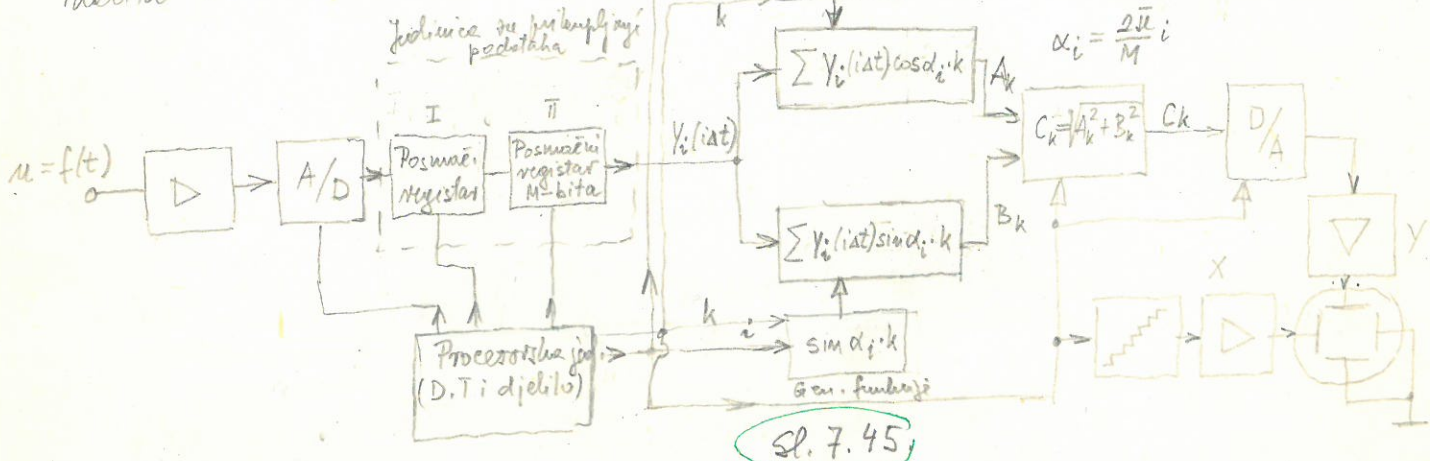 k
Jedinica za prikupljanje
podataka
α_i = 2π/M i
∑ Y_i(iΔt) cos α_i·k
A_k
I
II
u = f(t)
▷
A/D
Posmač.
registar
Posmačni
registar
M-bita
Y_i(iΔt)
C_k = √A_k² + B_k²
C_k
D/A
B_k
∑ Y_i(iΔt) sin α_i·k
▽
Y
X
▷
k
i
sin α_i·k
Gen. funkcije
Procesorska jed.
(D.T i djelilo)
Sl. 7.45.